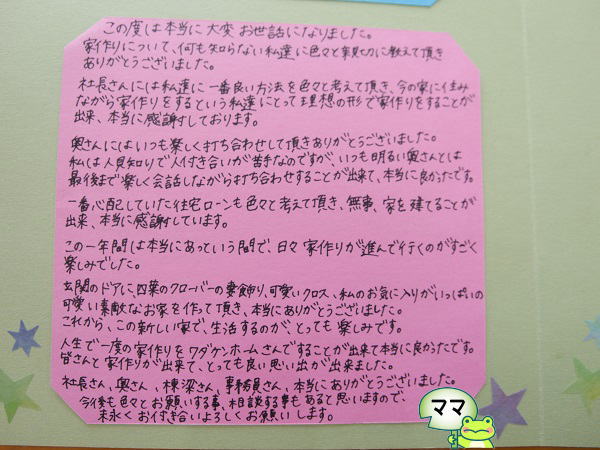 この度は本当に大変お世話になりました。
家作りについて、何も知らない私達に色々と親切に教えて頂き
ありがとうございました。
社長さんには私達に一番良い方法を色々と考えて頂き、今の家に住み
ながら家作りをするという私達にとって理想の形で家作りをすることが
出来、本当に感謝しております。
奥さんにはいつも楽しく打ち合わせして頂きありがとうございました。
私は人見知りで人付き合いが苦手なのですが、いつも明るい奥さんとは
最後まで楽しく会話しながら打ち合わせすることが出来て、本当に良かったです。
一番心配していた住宅ローンも色々と考えて頂き、無事、家を建てることが
出来、本当に感謝しています。
この一年間は本当にあっという間で、日々家作りが進んで行くのがすごく
楽しみでした。
玄関のドアに、四葉のクローバーの妻飾り、可愛いクロス、私のお気に入りがいっぱいの
可愛い素敵なお家を作って頂き、本当にありがとうございました。
これから、この新しい家で、生活するのが、とっても楽しみです。
人生で一度の家作りをワダケンホームさんですることが出来て本当に良かったです。
皆さんと家作りが出来て、とっても良い思い出が出来ました。
社長さん、奥さん、棟梁さん、事務員さん、本当にありがとうございました。
今後も色々とお願いする事、相談する事もあると思いますので、
末永くお付き合いよろしくお願いします。
ママ